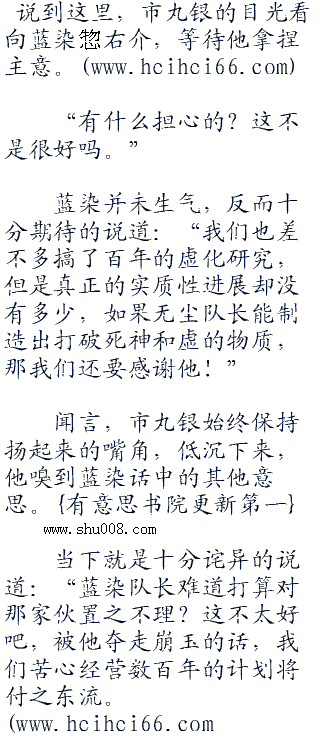 说到这里，市丸银的目光看
向蓝染惣右介，等待他拿捏
主意。(www.hcihci66.com)
“有什么担心的？这不
是很好吗。”
蓝染并未生气，反而十
分期待的说道：“我们也差
不多搞了百年的虚化研究，
但是真正的实质性进展却没
有多少，如果无尘队长能制
造出打破死神和虚的物质，
那我们还要感谢他！”
闻言，市丸银始终保持
扬起来的嘴角，低沉下来，
他嗅到蓝染话中的其他意
思。{有意思书院更新第一}
www.shu008.com
当下就是十分诧异的说
道：“蓝染队长难道打算对
那家伙置之不理？这不太好
吧，被他夺走崩玉的话，我
们苦心经营数百年的计划将
付之东流。
(www.hcihci66.com